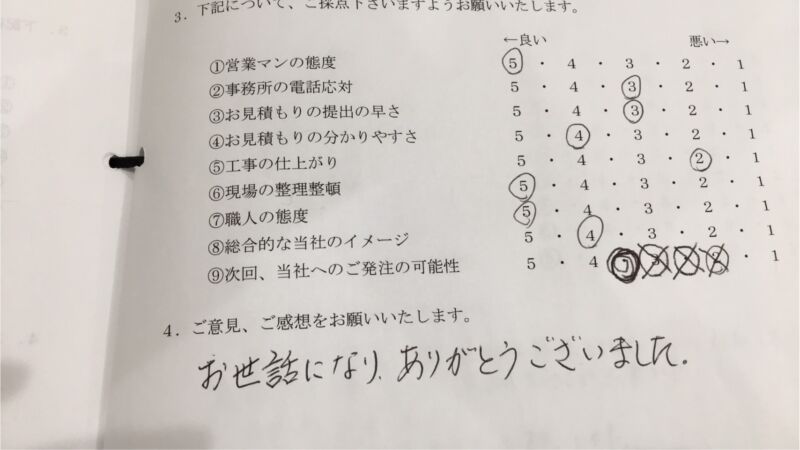 3．下記について、ご採点下さいますようお願いいたします。
←良い 悪い→
①営業マンの態度 5 ・ 4 ・ 3 ・ 2 ・ 1
②事務所の電話応対 5 ・ 4 ・ 3 ・ 2 ・ 1
③お見積もりの提出の早さ 5 ・ 4 ・ 3 ・ 2 ・ 1
④お見積もりの分かりやすさ 5 ・ 4 ・ 3 ・ 2 ・ 1
⑤工事の仕上がり 5 ・ 4 ・ 3 ・ 2 ・ 1
⑥現場の整理整頓 5 ・ 4 ・ 3 ・ 2 ・ 1
⑦職人の態度 5 ・ 4 ・ 3 ・ 2 ・ 1
⑧総合的な当社のイメージ 5 ・ 4 ・ 3 ・ 2 ・ 1
⑨次回、当社へのご発注の可能性 5 ・ 4 ・ 1
4．ご意見、ご感想をお願いいたします。
お世話になり、ありがとうございました。